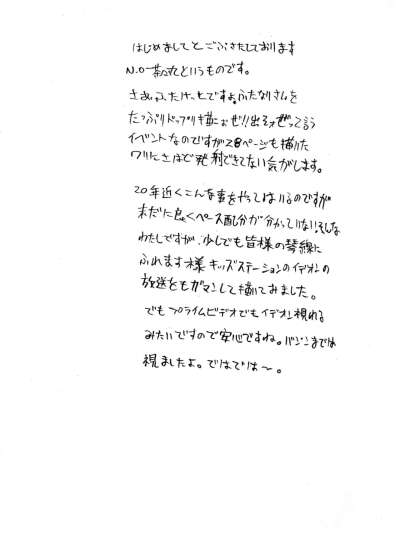 はじめましてとごぶさたしております
N.O-茶丸というものです。
さぁ、ふたけっとですよ。ふたなりさんを
たっぷりドップリ描こぉぜ!!出そォぜって言う
イベントなのですが28ページも描いた
ワリにさほど発射できてない気がします。
20年近くこんな事をやってはいるのですが
未だに良くペース配分が分かっていない、そんな
わたしですが、少しでも皆様の琴線に
ふれます様キッズステーションのイデオンの
放送をもガマンして描いてみました。
でもプライムビデオでもイデオン視れる
みたいですので安心ですね。バジンまでは
視ましたよ。ではでは〜。